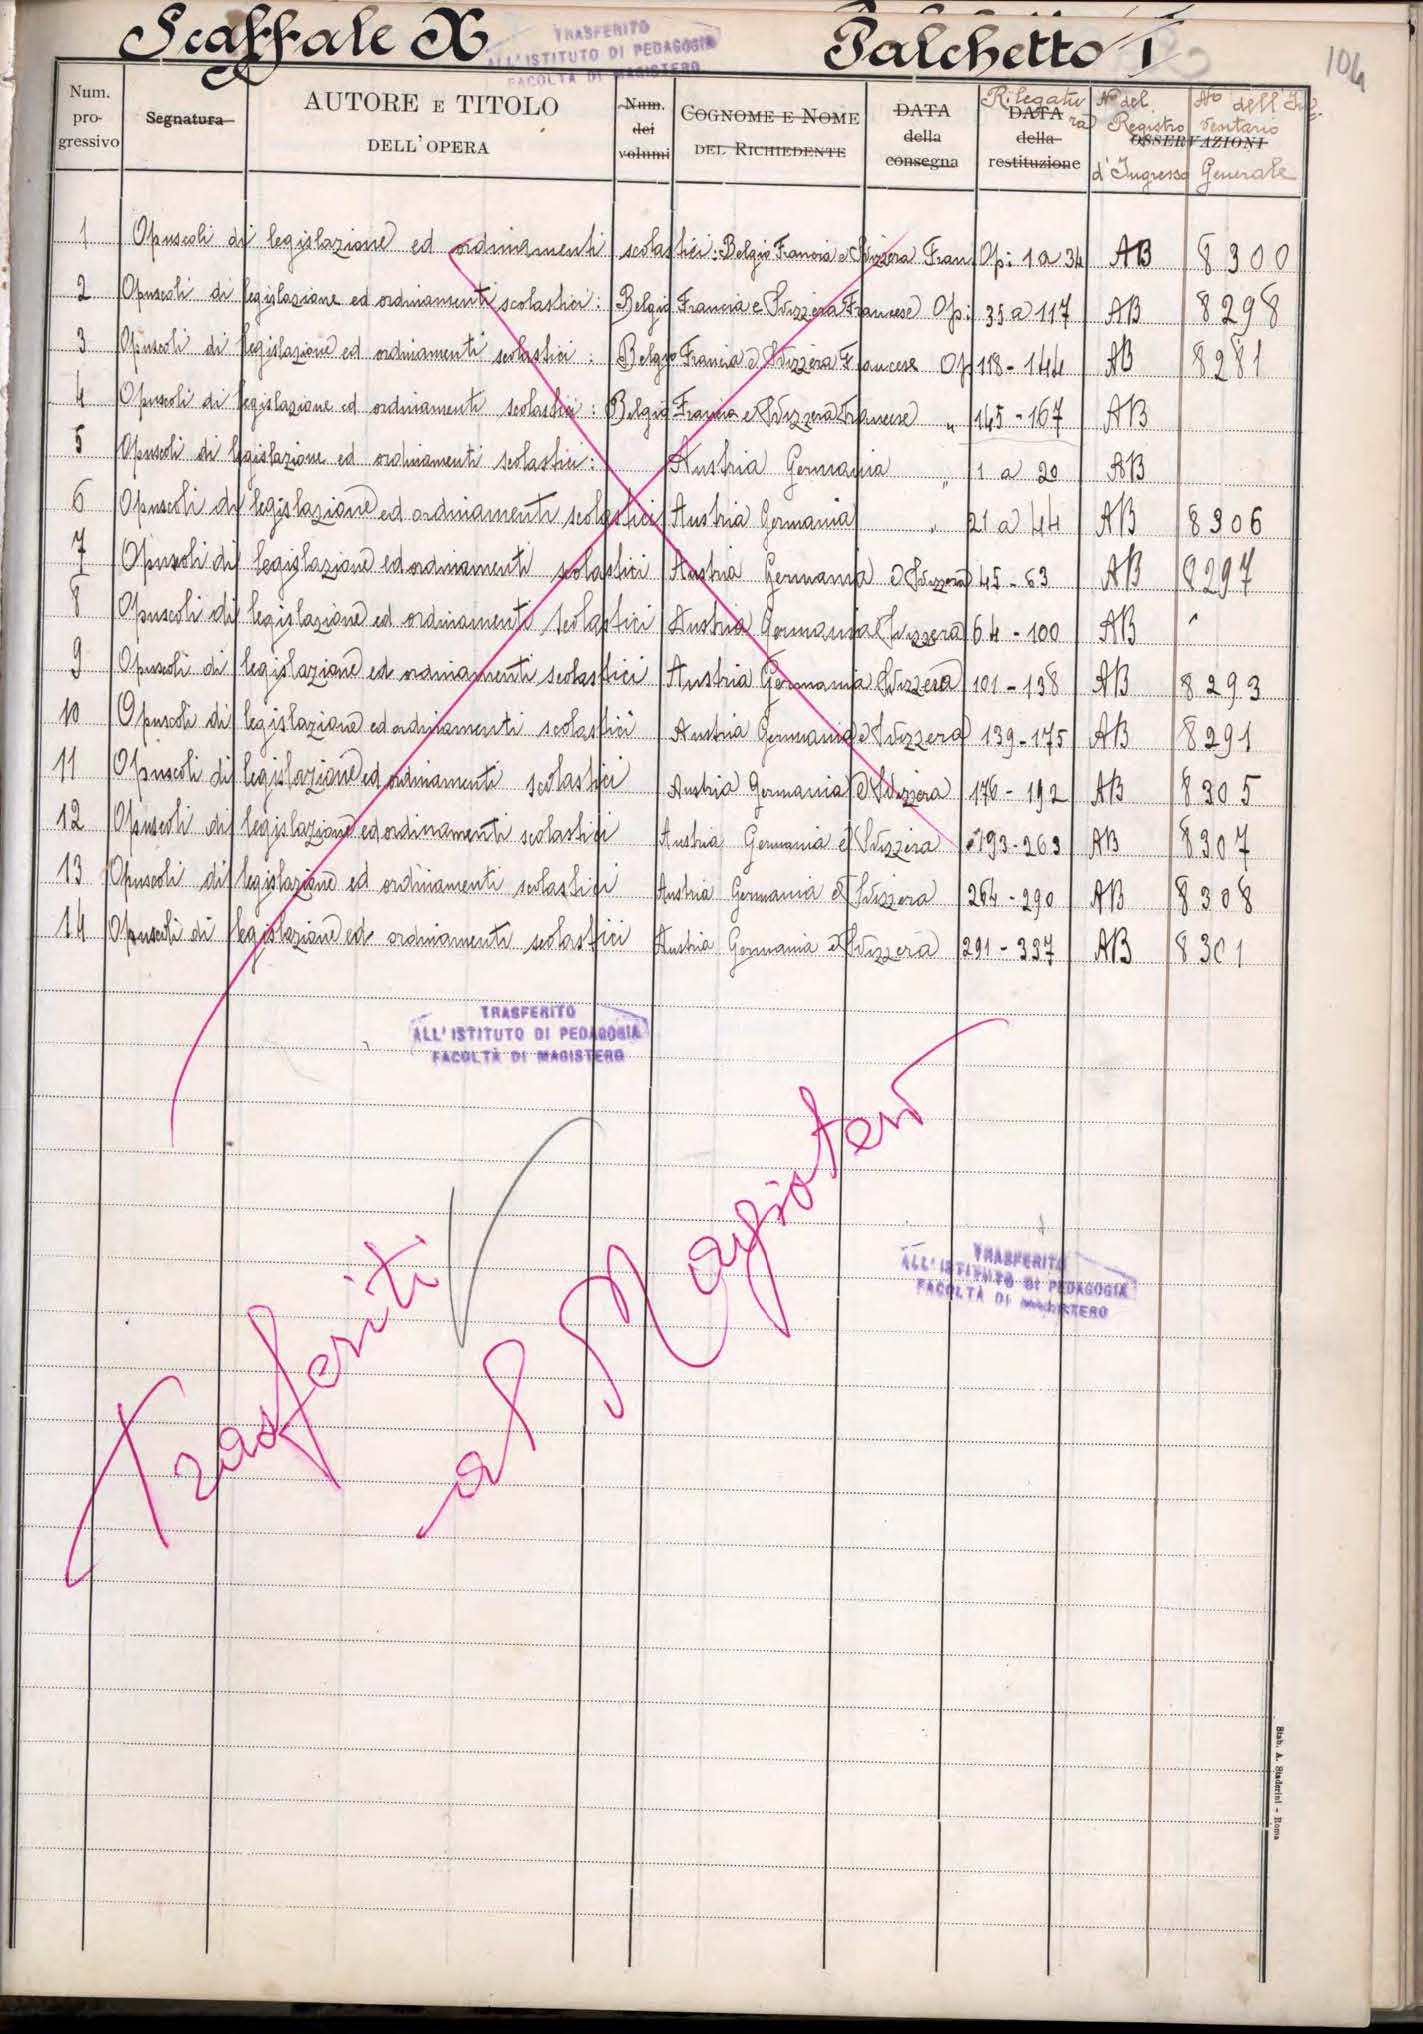 Scaffale X Palchetto I
104
TRASFERITO
ALL'ISTITUTO DI PEDAGOGIA
FACOLTÀ DI MAGISTERO
Num. progressivo Segnatura AUTORE E TITOLO DELL'OPERA Num. dei volumi COGNOME E NOME DEL RICHIEDENTE DATA della consegna DATA della restituzione OSSERVAZIONI
Rilegatura No del Registro d'Ingresso No dell'Inventario Generale
1 Opuscoli di legislazione ed ordinamenti scolastici: Belgio Francia e Svizzera Fran. Op: 1 a 34 AB 8300
2 Opuscoli di legislazione ed ordinamenti scolastici: Belgio Francia e Svizzera Francese Op: 35 a 117 AB 8298
3 Opuscoli di legislazione ed ordinamenti scolastici: Belgio Francia e Svizzera Francese Op 118-144 AB 8281
4 Opuscoli di legislazione ed ordinamenti scolastici: Belgio Francia e Svizzera Francese " 145-167 AB
5 Opuscoli di legislazione ed ordinamenti scolastici: Austria Germania " 1 a 20 AB
6 Opuscoli di legislazione ed ordinamenti scolastici Austria Germania " 21 a 44 AB 8306
7 Opuscoli di legislazione ed ordinamenti scolastici Austria Germania e Svizzera 45-63 AB 8297
8 Opuscoli di legislazione ed ordinamenti scolastici Austria Germania Svizzera 64-100 AB
9 Opuscoli di legislazione ed ordinamenti scolastici Austria Germania Svizzera 101-138 AB 8293
10 Opuscoli di legislazione ed ordinamenti scolastici Austria Germania e Svizzera 139-175 AB 8291
11 Opuscoli di legislazione ed ordinamenti scolastici Austria Germania e Svizzera 176-192 AB 8305
12 Opuscoli di legislazione ed ordinamenti scolastici Austria Germania e Svizzera 193-263 AB 8307
13 Opuscoli di legislazione ed ordinamenti scolastici Austria Germania e Svizzera 264-290 AB 8308
14 Opuscoli di legislazione ed ordinamenti scolastici Austria Germania e Svizzera 291-337 AB 8301
TRASFERITO
ALL'ISTITUTO DI PEDAGOGIA
FACOLTÀ DI MAGISTERO
Trasferiti
al Magistero
TRASFERITO
ALL'ISTITUTO DI PEDAGOGIA
FACOLTÀ DI MAGISTERO
Stab. A. Staderini - Roma